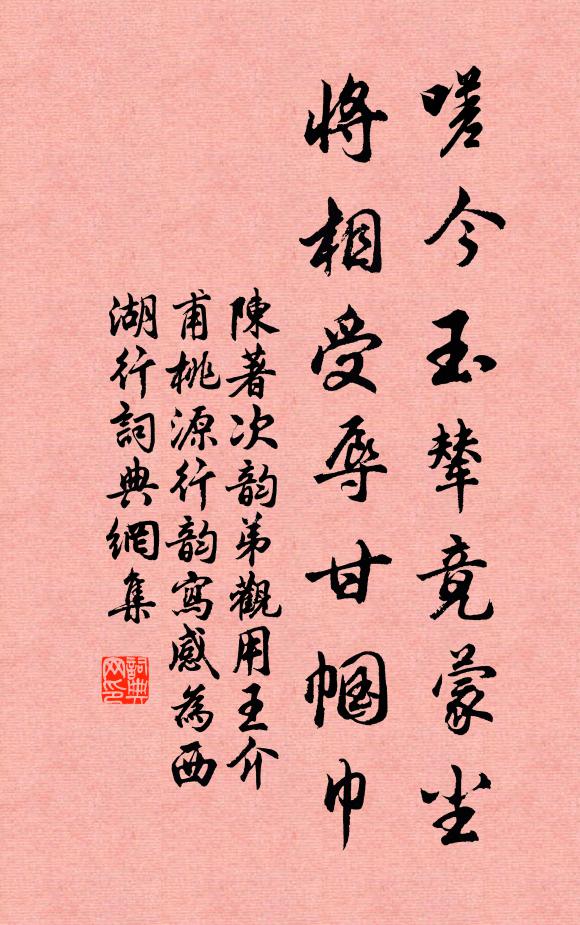 嗟今玉輦竟蒙尘
將相受辱甘帼巾
陳著次韵弟觀用王介
甫桃源行韵寫感為西
湖行詞典網集
詞典
网印